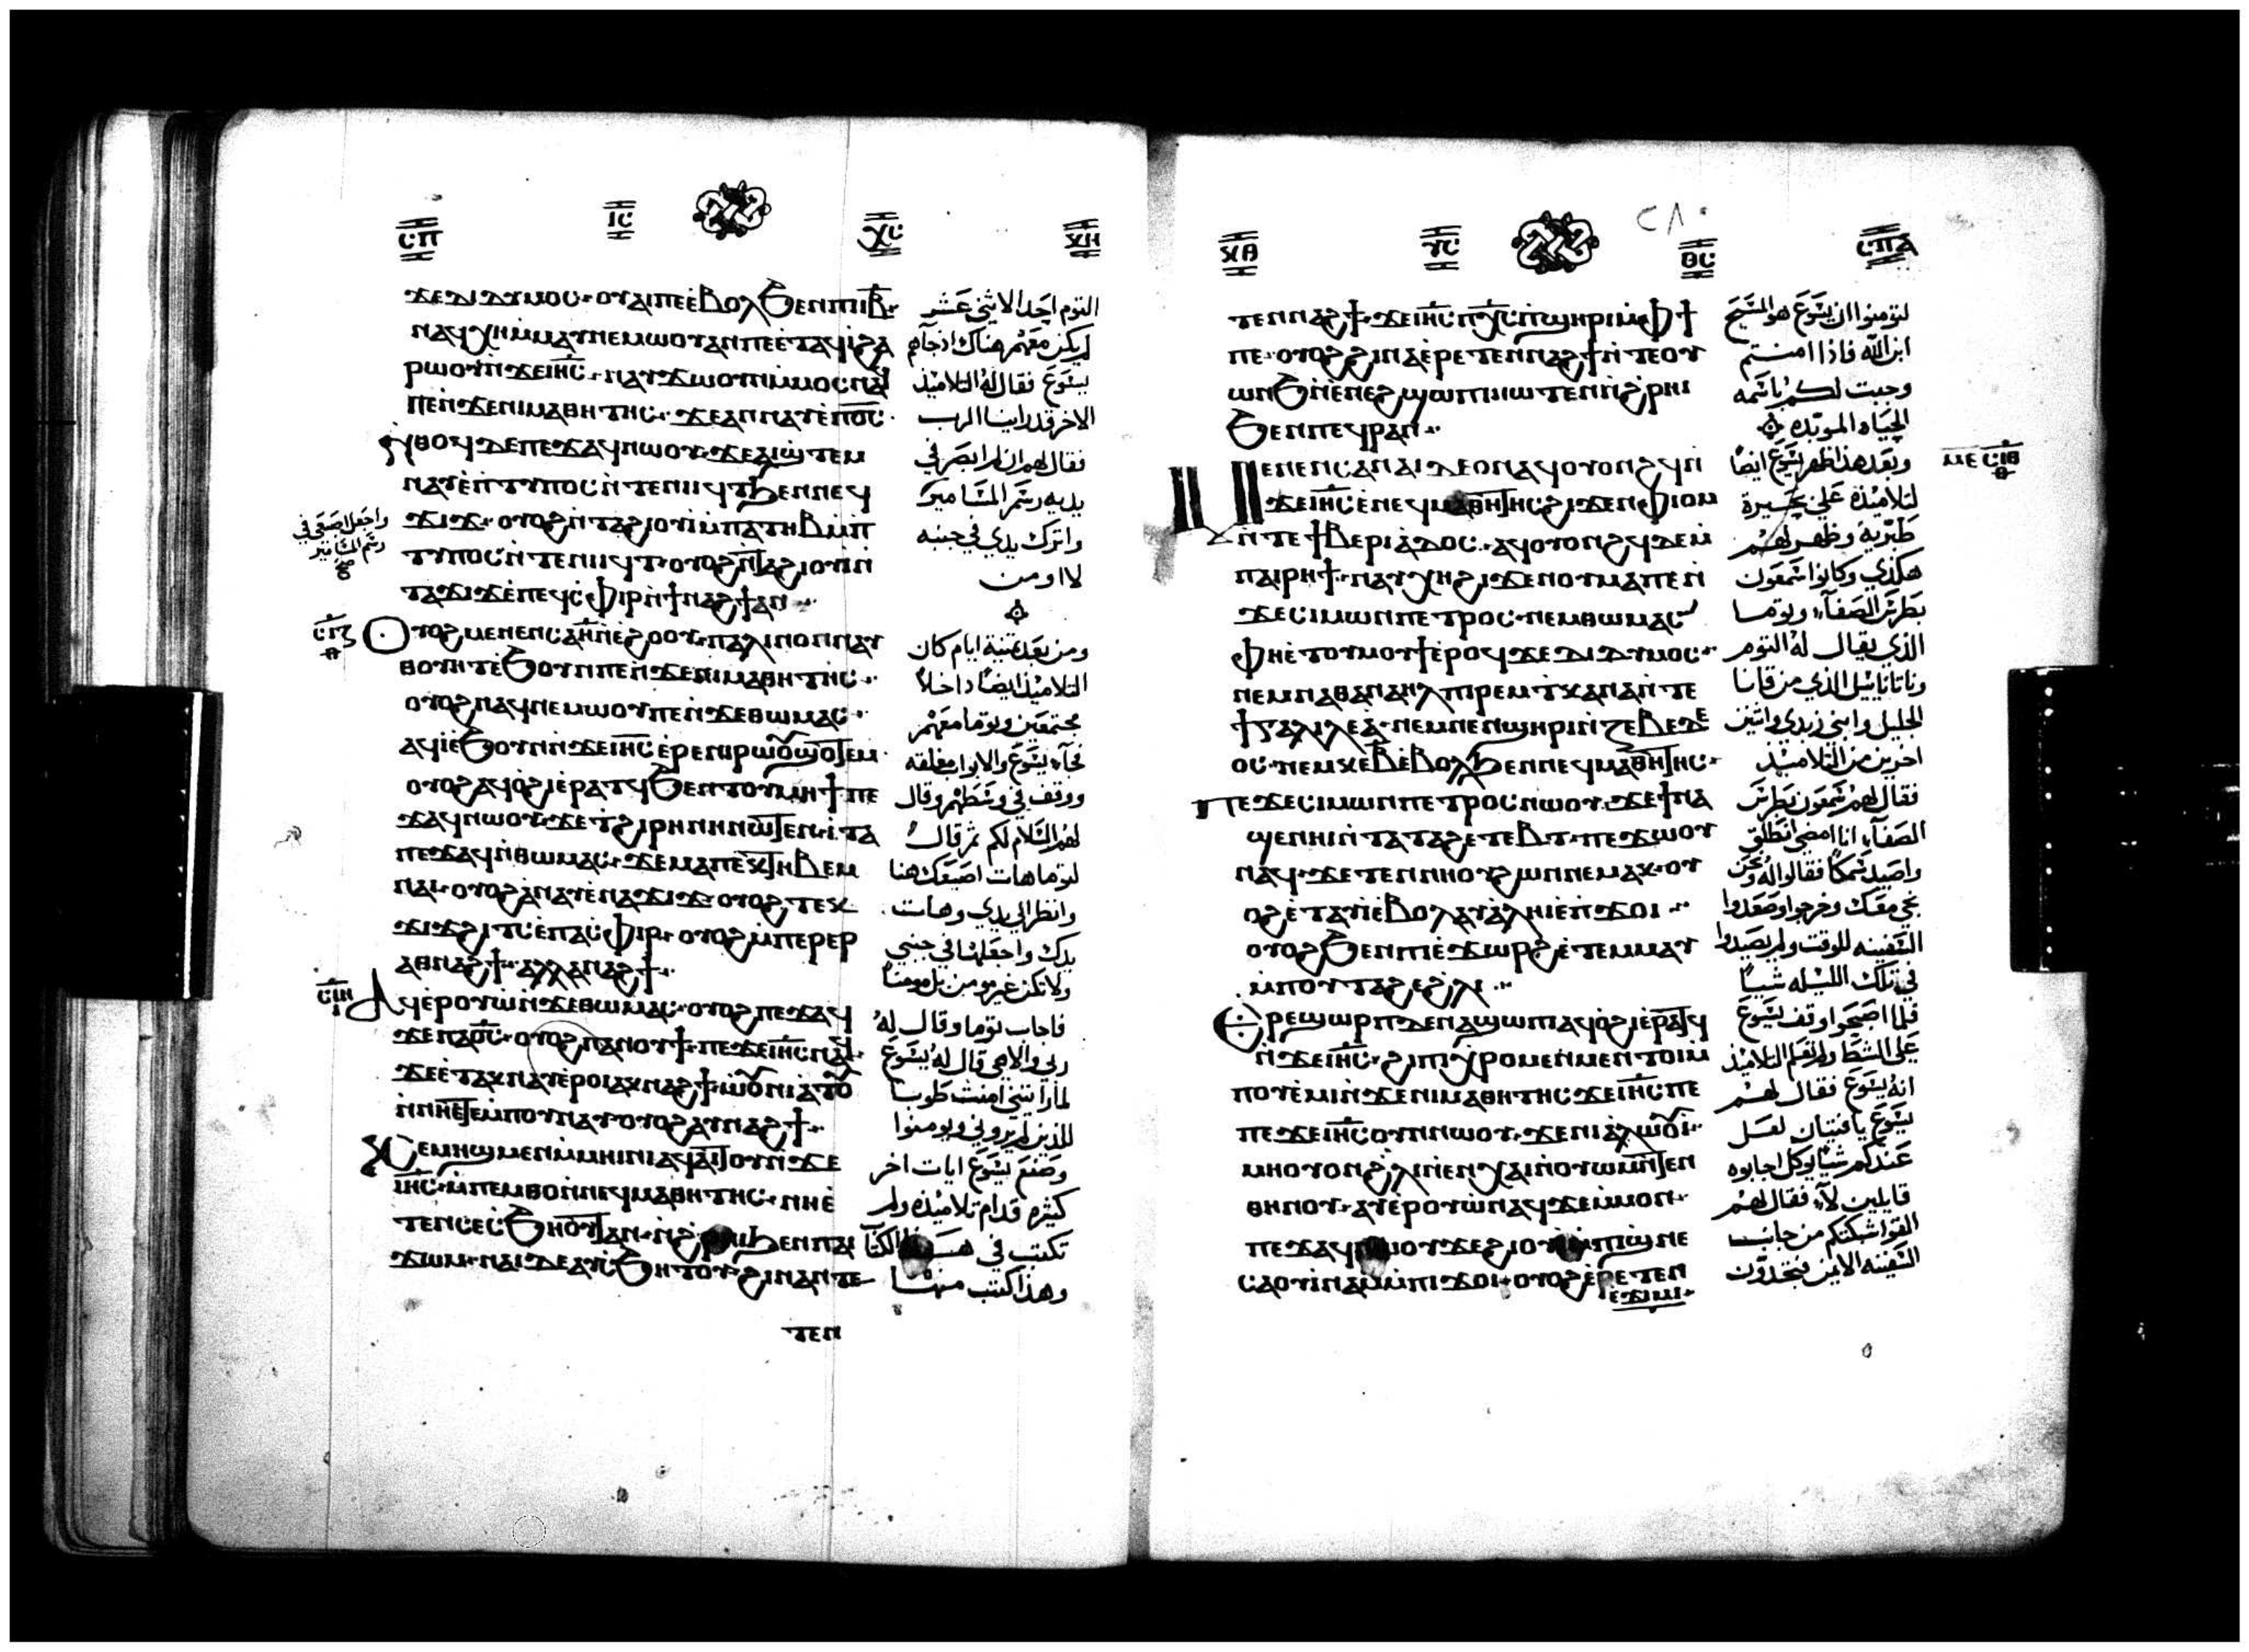 ⲥⲡ ⲓⲥ ⲭⲥ ⲕⲏ
ϫⲉⲇⲓⲇⲩⲙⲟⲥ·ⲟⲩⲁⲓⲡⲉⲉⲃⲟⲗϧⲉⲛⲡⲓⲓⲃ·
ⲛⲁϥⲭⲏⲙⲙⲁⲩⲛⲉⲙⲱⲟⲩⲁⲛⲡⲉⲉⲧⲁϥⲓϩⲁ
ⲣⲱⲟⲩⲛϫⲉⲓⲏⲥ·ⲛⲁⲩϫⲱⲟⲩⲙⲙⲟⲥⲛⲁϥ
ⲡⲉⲛϫⲉⲛⲓⲙⲁⲑⲏⲧⲏⲥ·ϫⲉⲁⲛⲛⲁⲩⲉⲡⲟⲥ·
ⲛⲑⲟϥⲇⲉⲡⲉϫⲁϥⲛⲱⲟⲩ·ϫⲉⲁⲓϣⲧⲉⲙ
ⲛⲁⲩⲉⲛⲧⲩⲡⲟⲥⲛⲧⲉⲛⲓⲓϥⲧϧⲉⲛⲛⲉϥ
ϫⲓϫ·ⲟⲩⲟϩⲛⲧⲁϩⲓⲟⲩⲓⲙⲡⲁⲧⲏⲃⲙⲡ
ⲧⲩⲡⲟⲥⲛⲧⲉⲛⲓⲓϥⲧ·ⲟⲩⲟϩⲛⲧⲁϩⲓⲟⲩⲓⲛ
ⲧⲁϫⲓϫⲉⲡⲉϥⲥⲫⲓⲣⲛϯⲛⲁϩϯⲁⲛ
ⲟⲩⲟϩⲙⲉⲛⲉⲛⲥⲁⲏⲛⲉϩⲟⲟⲩ·ⲡⲁⲗⲓⲛⲟⲛⲛⲁⲩ
ⲑⲟⲩⲏⲧⲉϧⲟⲩⲛⲡⲉⲛϫⲉⲛⲓⲙⲁⲑⲏⲧⲏⲥ·
ⲟⲩⲟϩⲛⲁϥⲛⲉⲙⲱⲟⲩⲡⲉⲛϫⲉⲑⲱⲙⲁⲥ·
ⲁϥⲓⲉϧⲟⲩⲛⲛϫⲉⲓⲏⲥⲉⲣⲉⲛⲓⲣⲱⲟⲩϣⲟⲧⲉⲙ·
ⲟⲩⲟϩⲁϥⲟϩⲓⲉⲣⲁⲧϥϧⲉⲛⲧⲟⲩⲙⲏϯ·ⲡⲉ
ϫⲁϥⲛⲱⲟⲩ·ϫⲉⲧϩⲓⲣⲏⲛⲏⲛⲱⲧⲉⲛ·ⲓⲧⲁ
ⲡⲉϫⲁϥⲛⲑⲱⲙⲁⲥ·ϫⲉⲙⲁⲡⲉⲕⲧⲏⲃⲉⲙ
ⲛⲁⲓ·ⲟⲩⲟϩⲁⲛⲁⲩⲉⲛⲁϫⲓϫ·ⲟⲩⲟϩ·ⲧⲉⲕ
ϫⲓϫϩⲓⲧⲥⲉⲡⲁⲥⲫⲓⲣ·ⲟⲩⲟϩⲙⲡⲉⲣⲉⲣ
ⲁⲑⲛⲁϩϯ·ⲁⲗⲗⲁⲛⲁϩϯ·
ⲁϥⲉⲣⲟⲩⲱⲛϫⲉⲑⲱⲙⲁⲥ·ⲟⲩⲟϩⲡⲉϫⲁϥ
ϫⲉⲡⲁⲟⲥ·ⲟⲩⲟϩⲡⲁⲛⲟⲩϯ·ⲡⲉϫⲉⲓⲏⲥⲛⲁϥ·
ϫⲉⲉⲧⲁⲕⲛⲁⲩⲉⲣⲟⲓⲁⲕⲛⲁϩϯ·ⲱⲟⲩⲛⲓⲁⲧⲟⲩ
ⲛⲛⲏⲉⲧⲉⲙⲡⲟⲩⲛⲁⲩⲟⲩⲟϩⲁⲩⲛⲁϩϯ·
ⲕⲉⲙⲏϣⲙⲉⲛⲙⲙⲏⲓⲛⲓⲁϥⲁⲓⲧⲟⲩⲛϫⲉ
ⲓⲏⲥ·ⲙⲡⲉⲙⲑⲟⲛⲛⲉϥⲙⲁⲑⲏⲧⲏⲥ·ⲛⲏⲉ
ⲧⲉⲛⲥⲉⲥϧⲏⲟⲩⲧⲁⲛ·ⲛϩⲣⲏⲓϧⲉⲛⲡⲁⲓ
ϫⲱⲙ·ⲛⲁⲓⲇⲉⲁⲩⲥϧⲏⲧⲟⲩ·ϩⲓⲛⲁⲛⲧⲉ
ⲧⲉⲛ
التوم احد الاثنى عشر
لم يكن معهم هناك اذ جآهم
يسوع فقال له التلاميذ
الاخر قد راينا الرب
فقال لهم ان لم ابصر في
يديه رسم المسامير
واترك يدي في جنبه
لا اومن
ومن بعد ثمنية ايام كان
التلاميذ ايضا داخلا
مجتمعين وتوما معهم
فجآء يسوع والابواب مغلقه
ووقف في وسطهم وقال
لهم السلام لكم ثم قال
لتوما هات اصبعك هنا
وانظر الى يدي وهات
يدك واجعلها في جنبي
ولا تكن غير مومن بل مومنا
فاجاب توما وقال له
ربي والاهي قال له يسوع
لما رايتني امنت طوبا
للذين لم يروني ويومنوا
وصنع يسوع ايات اخر
كثيره قدام تلاميذه ولم
تكتب في هذا الكتا
وهذا كتب منها
واجعل اصبعي في
رسم المسامير
ⲥⲓⲍ
ⲥⲓⲏ
ⲕⲑ ⲩⲥ ⲑⲥ ⲥⲡⲁ
ⲧⲉⲛⲛⲁϩϯ·ϫⲉⲓⲏⲥⲡⲭⲥⲡϣⲏⲣⲓⲙⲫϯ
ⲡⲉ·ⲟⲩⲟϩϩⲓⲛⲁⲉⲣⲉⲧⲉⲛⲛⲁϩϯⲛⲧⲉⲟⲩ
ⲱⲛϧⲛⲉⲛⲉϩϣⲱⲡⲓⲛⲱⲧⲉⲛⲛϩⲣⲏⲓ
ϧⲉⲛⲡⲉϥⲣⲁⲛ·
ⲙⲉⲛⲉⲛⲥⲁⲛⲁⲓⲇⲉⲟⲛⲁϥⲟⲩⲟⲛϩϥⲛ
ϫⲉⲓⲏⲥⲉⲛⲉϥⲙⲁⲑⲏⲧⲏⲥϩⲓϫⲉⲛⲫⲓⲟⲙ
ⲛⲧⲉϯⲃⲉⲣⲓⲁⲇⲟⲥ·ⲁϥⲟⲩⲟⲛϩϥⲇⲉⲙ
ⲡⲁⲓⲣⲏϯ·ⲛⲁⲩⲭⲏϩⲓϫⲉⲛⲟⲩⲙⲁⲡⲉⲛ
ϫⲉⲥⲓⲙⲱⲛⲡⲉⲧⲣⲟⲥ·ⲛⲉⲙⲑⲱⲙⲁⲥ
ⲫⲏⲉⲧⲟⲩⲙⲟⲩϯⲉⲣⲟϥϫⲉⲇⲓⲇⲩⲙⲟⲥ·
ⲛⲉⲙⲛⲁⲑⲁⲛⲁⲏⲗⲡⲓⲣⲉⲙⲧⲕⲁⲛⲁⲛⲧⲉ
ϯⲅⲁⲗⲓⲗⲉⲁ·ⲛⲉⲙⲛⲉⲛϣⲏⲣⲓⲛⲍⲉⲃⲉⲇⲉ
ⲟⲥ·ⲛⲉⲙⲕⲉⲃⲉⲃⲟⲗϧⲉⲛⲛⲉϥⲙⲁⲑⲏⲧⲏⲥ·
ⲡⲉϫⲉⲥⲓⲙⲱⲛⲡⲉⲧⲣⲟⲥⲛⲱⲟⲩ·ϫⲉϯⲛⲁ
ϣⲉⲛⲏⲓⲛⲧⲁⲧⲁϩⲉⲧⲉⲃⲧ·ⲡⲉϫⲱⲟⲩ
ⲛⲁϥ·ϫⲉⲧⲉⲛⲛⲏⲟⲩϩⲱⲛⲛⲉⲙⲁⲕ·ⲟⲩ
ⲟϩⲉⲧⲁⲩⲓⲉⲃⲟⲗⲁⲩⲁⲗⲏⲓⲉⲡϫⲟⲓ·
ⲟⲩⲟϩϧⲉⲛⲡⲓⲉϫⲱⲣϩⲉⲧⲉⲙⲙⲁⲩ
ⲙⲡⲟⲩⲧⲁϩⲉϩⲗⲓ·
ⲉⲣⲉϣⲱⲣⲡⲇⲉⲛⲁϣⲱⲡⲓⲁϥⲟϩⲓⲉⲣⲁⲧϥ
ⲛϫⲉⲓⲏⲥ·ϩⲓⲡⲓⲭⲣⲟⲙⲉⲛⲙⲉⲛⲧⲟⲓⲙ
ⲡⲟⲩⲉⲙⲓⲛϫⲉⲛⲓⲙⲁⲑⲏⲧⲏⲥϫⲉⲓⲏⲥⲡⲉ
ⲡⲉϫⲉⲓⲏⲥⲟⲩⲛⲛⲱⲟⲩ·ϫⲉⲛⲓⲁⲗⲱⲟⲩⲓ·
ⲙⲏⲟⲩⲟⲛϩⲗⲓⲛⲉⲛⲭⲁⲓⲛⲟⲩⲱⲙⲛⲧⲉⲛ
ⲑⲏⲛⲟⲩ·ⲁⲩⲉⲣⲟⲩⲱⲛⲁϥϫⲉⲙⲙⲟⲛ·
ⲡⲉϫⲁϥⲛⲱⲟⲩϫⲉϩⲓⲟⲩⲓⲙⲡⲓϣⲛⲉ
ⲥⲁⲟⲩⲓⲛⲁⲙⲙⲡⲓϫⲟⲓ·ⲟⲩⲟϩⲉⲣⲉⲧⲉⲛ
ⲉϫⲓⲙⲓ·
لتومنوا ان يسوع هو المسيح
ابن الله فاذا امنتم
وجبت لكم باسمه
الحياه الموبده
وبعد هذا ظهر يسوع ايضا
لتلاميذه على بحيرة
طبرية وظهر لهم
هكذي وكانوا شمعون
بطرس الصفآء وتوما
الذي يقال له التوم
وناتانائيل الذي من قانا
الجليل وابنى زبدي واثنين
اخرين من التلاميذ
فقال لهم شمعون بطرس
الصفآء انا امضي انطلق
واصيد سمكا فقالوا له ونحن
نجي معك وخرجوا وصعدوا
السفينه للوقت ولم يصيدوا
في تلك الليله شيا
فلما اصبحوا وقف يسوع
على الشط ولم يعلم التلاميذ
انه يسوع فقال لهم
يسوع يا فتيان لعل
عندكم شيا يوكل اجابوه
قايلين لآء فقال لهم
القوا شبكتكم من جانب
السفينه الايمن فتجدون
ⲙⲉ ⲥⲓⲑ